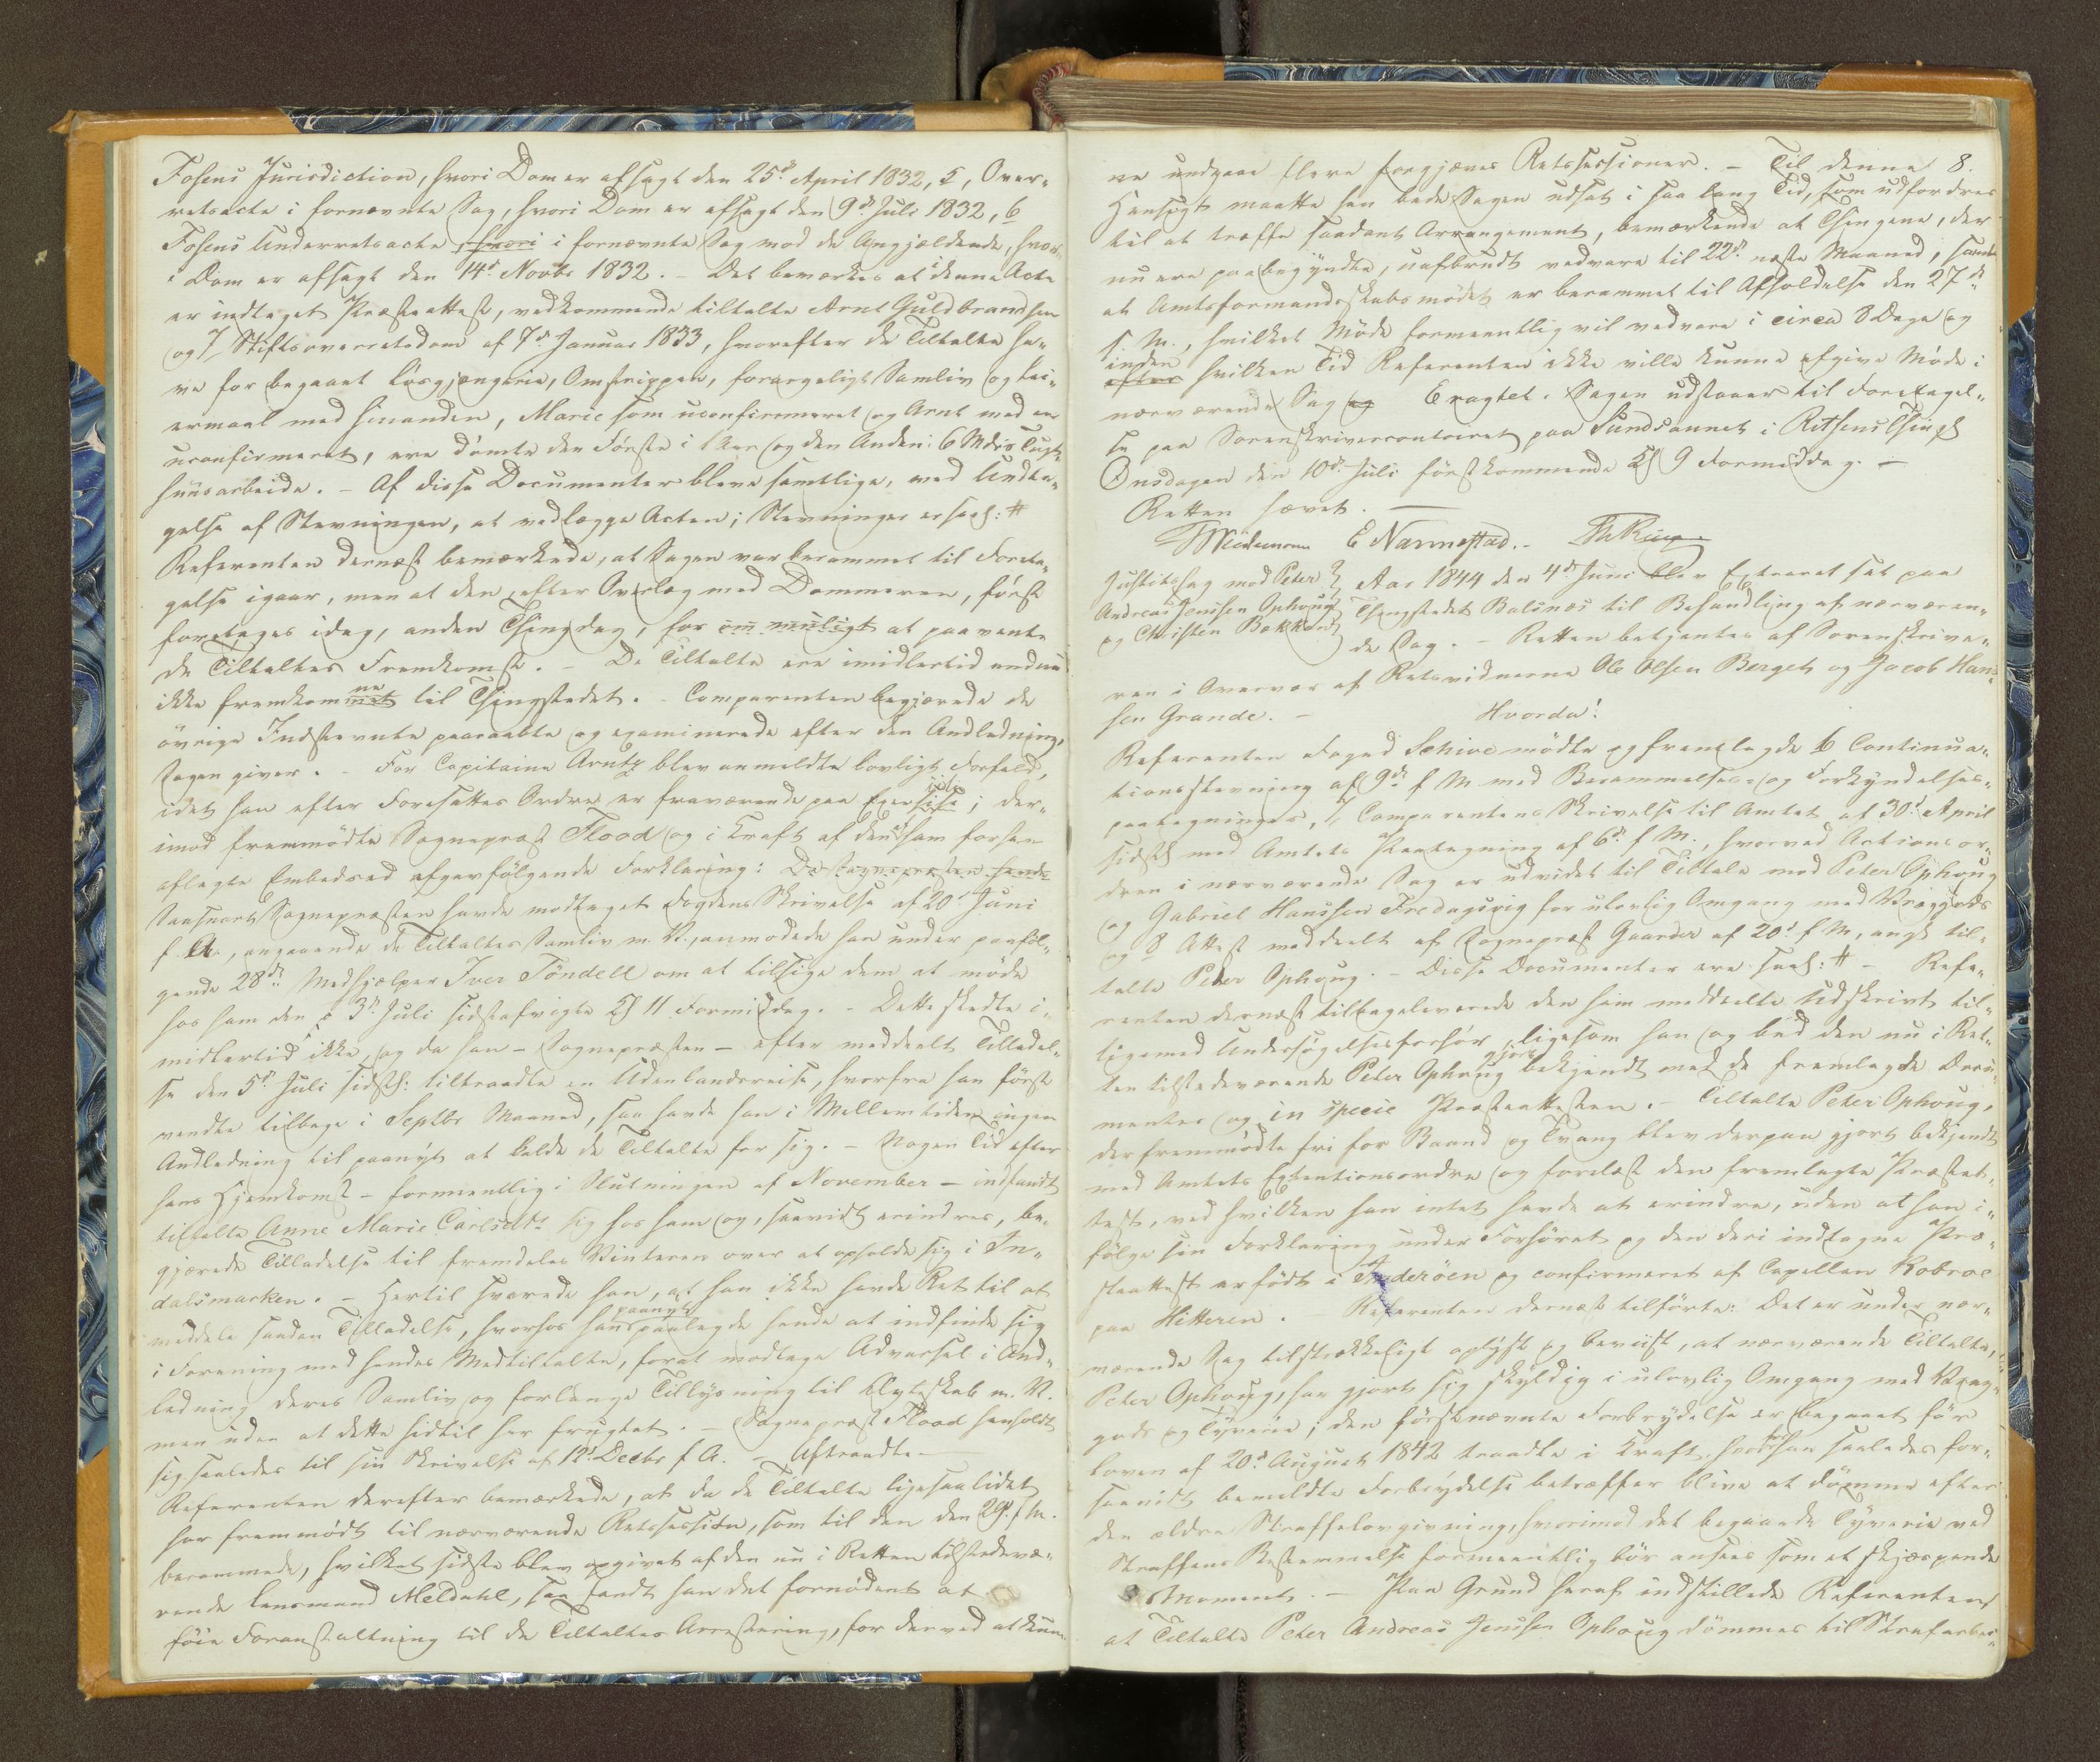 Fosens Jurisdiction, hvori Dom er afsagt den 25de April 1832, 5, Over-
retsacte i fornævnte Sag, hvori Dom er afsagt den 9de Juli 1832, 6
Fosens Underretsacte, hvori i fornævnte Sag mod de Angjældende, hvor-
i Dom er afsagt den 14de Novbr 1832. - Det bemærkes at i denne Acte
er indtaget Præsteattest, vedkommende tiltalte Arnt Guldbrandsen
og 7, Stiftsoverretsdom af 7de Januar 1833, hvorefter de Tiltalte ha-
ve for begaaet Løsgjængerie, Omstrippen, forargeligt Samliv og Lei-
ermaal med hinanden, Marie som uconfirmeret og Arnt med en
uconfirmeret, ere dømte den Første i 1 Aar og den Anden i 6 Mdrs Tugt-
huusarbeide. - Af disse Documenter bleve samtlige, med Undta-
gelse af Stevningen, at vedlægge Acten; Stevningen er saal: #
Referenten dernæst bemærkede, at Sagen var berammet til Foreta-
gelse igaar, men at den, efter Overlæg med Dommeren, først
foretages idag, anden Thingdag, for om muligt at paavente
de Tiltaltes Fremkomst. - De Tiltalte ere imidlertid endnu
ikke fremkomne til Thingstedet. - Comparenten begjærede de
øvrige Indstevnte paaraabte og examinerede efter den Andledning,
Sagen giver. - For Capitaine Arntz blev anmeldte lovligt Forfald,
idet han efter Foresattes Ordre er fraværende paa ; der-
imod fremmødte Sognepræst Flood og i Kraft af den af ham forhen
aflagte Embedsed afgav følgende Forklaring: Da Sognepræsten havde
Saasnart Sognepræsten havde modtaget Fogdens Skrivelse af 20de Juni
f. A., angaaende de Tiltaltes Samliv m. V., anmodede han under paaføl-
gende 28de Medhjælper Iver Töndell om at tilsige dem at møde
hos ham den 3de Juli sidstafvigte Kl 11 Formiddag. - Dette skedte i-
midlertid ikke, og da han - Sognepræsten - efter meddeelt Tilladel-
se den 5de Juli sidstl: tiltraadte en Udenlandsreise, hvorfra han først
vendte tilbage i Septbr Maaned, saa havde han i Mellemtiden ingen
Andledning til paanyt at kalde de Tiltalte for sig. - Nogen Tid efter
hans Hjemkomst - formeentlig i Slutningen af November - indfandt
tiltalte Anne Marie Carlsdtr sig hos ham og, saavidt erindres, be-
gjærede Tilladelse til fremdeles Vinteren over at opholde sig i In-
dalsmarken. - Hertil svarede han, at han ikke havde Ret til at
meddele saadan Tilladelse, hvorhos han paanyt paalagde hende at indfinde sig
i Forening med hendes Medtiltalte, forat modtage Advarsel i And-
ledning deres Samliv og forlange Tillysning til Ægteskab m. V.
men uden at dette hidtil har frugtet. - Sognepræst Flood henholdt
sig saaledes til sin Skrivelse af 12te Decbr f. A. - Aftraadte. -
Referenten derefter bemærkede, at da de Tiltalte ligesaalidet
har fremmødt til nærværende Retssession, som til den den 29de f. M.
berammede, hvilket sidste blev opgivet af den nu i Retten tilstedevæ-
rende Lensmand Meldahl, saa fandt han det fornødent at
føie Foranstaltning til de Tiltaltes Arrestering, for derved at kun-
ne undgaae flere forgjæves Retssessioner. - Til denne 8.
Hensigt maatte han bede Sagen udsat i saa lang Tid, som udfordres
til at træffe saadant Arrangement, bemærkende at Thingene, der
nu ere paabegyndte, uafbrudt vedvare til 22de næste Maaned, samt
at Amtsformandskabsmødet er berammet til Afholdelse den 27de
s. M., hvilket Møde formeentlig vil vedvare i circa 8 Dage og
inden hvilken Tid Referenten ikke ville kunne afgive Møde i
nærværende Sag og Eragtet. Sagen udstaaer til Foretagel-
se paa Sorenskrivercontoiret paa Sundsaunet i Rissens Thingl
Onsdagen den 10de Juli førstkommende Kl 9 Formiddag. -
Retten hævet. -
E Narmestad. -
Justitssag mod Peter
Andreas Jenssen Ophoug
og Christen Bakken
Aar 1844 den 4de Juni blev Extraret sat paa
Thingstedet Balsnæs til Behandling af nærværen-
de Sag. - Retten betjentes af Sorenskrive-
ren i Overvær af Retsvidnerne Ole Olsen Berget og Jacob Han-
sen Grande. - Hvorda!
Referenten Foged Schive mødte og fremlagde 6 Continua-
tionsstevning af 9de f. M. med Berammelses- og Forkyndelses-
paategninger, 7, Comparentens Skrivelse til Amtet af 30te April
sidstl med Amtets Paategning af 6te f. M., hvorved Actionsor-
dren i nærværende Sag er udvidet til Tiltale mod Peter Ophoug
og Gabriel Hanssen Fredagsvig for ulovlig Omgang med Vraggods
og 8 Attest meddeelt af Sognepræst Gaarder af 20de f. M., angl til-
talte Peter Ophoug. - Disse Documenter ere saal: # - Refe-
renten dernæst tilbageleverede den ham meddeelte Udskrivt til-
ligemed Undersøgelsesforhør, ligesom han og bad den nu i Ret-
ten tilstedeværende Peter Ophoug gjort bekjendt med de fremlagde Docu-
menter og in specie Præsteattesten. - Tiltalte Peter Ophoug,
der fremmødte fri for Baand og Tvang blev derpaa gjort bekjendt
med Amtets Extentionsordre og forelæst den fremlagte Præsteat-
test, ved hvilken han intet havde at erindre, uden at han i-
følge sin Forklaring under Forhøret og den deri indtagne Præ-
steattest er født i Inderöen og confirmeret af Capellan Robroe
paa Hitteren. Referenten dernæst tilførte: Det er under nær-
værende Sag tilstrækkeligt oplyst og beviist, at nærværende Tiltalte,
Peter Ophoug, har gjort sig skyldig i ulovlig Omgang med Vrag-
gods og Tyverie; den førstnævnte Forbrydelse er begaaet før
Loven af 20de August 1842 traadte i Kraft, hvorfor han saaledes for-
saavidt bemeldte Forbrydelse betræffer blive at dømme efter
den ældre Straffelovgivning, hvorimod det begaaede Tyverie ved
Straffens Bestemmelse formeentlig bør ansees som et skjærpende
Moment. - Paa Grund heraf indstillede Referenten
at Tiltalte Peter Andreas Jenssen Ophoug dømmes til Strafarbei-